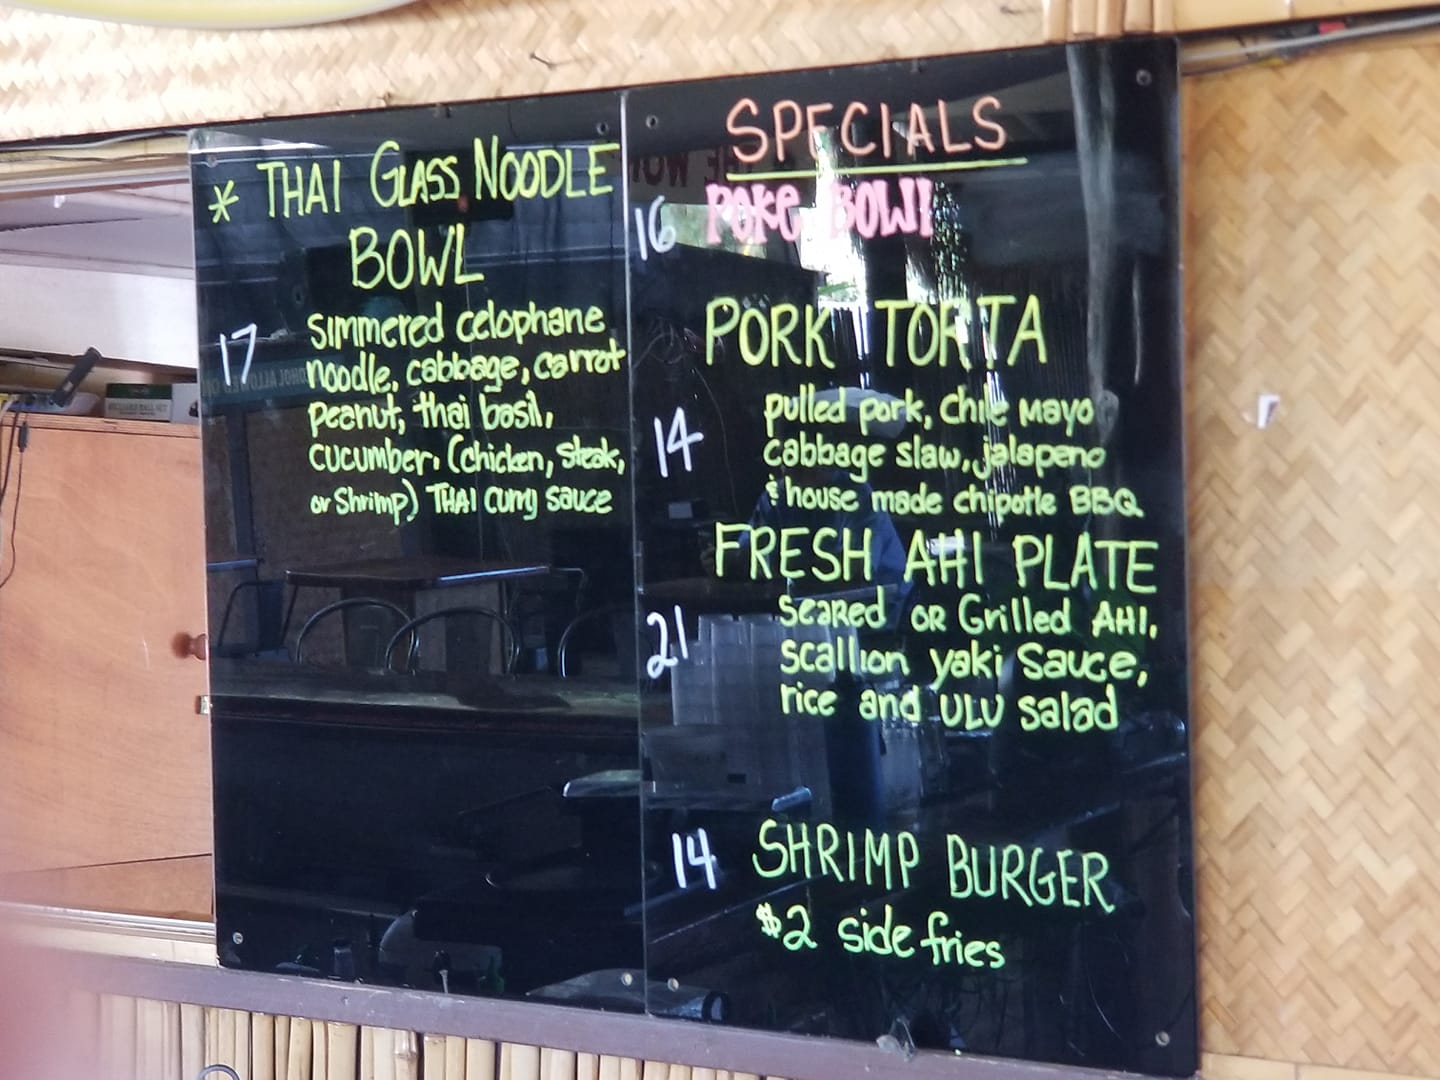 * THAI GLASS NOODLE
BOWL
17
simmered celophane
noodle, cabbage, carrot
peanut, thai basil,
cucumber. (chicken, steak,
or Shrimp) THAI curry sauce
SPECIALS
16 POKE BOWl
PORK TORTA
14
pulled pork, chile mayo
cabbage slaw, jalapeno
& house made chipotle BBQ
FRESH AHI PLATE
21
seared OR Grilled AHI,
scallion yaki Sauce,
rice and ULU salad
14 SHRIMP BURGER
$2 side fries